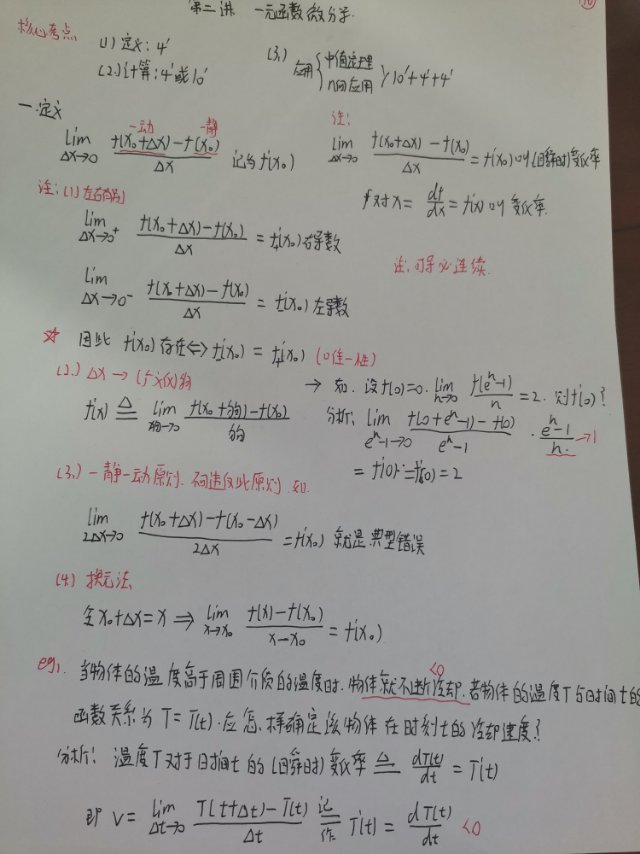 第二讲 一元函数微分学.
核心考点
(1) 定义: 4'
(2) 计算: 4'或10'
(3) 应用 { 中值定理 几何应用 } 10'+4'+4'
一.定义
一动 一静
lim Δx→0 f(x₀+Δx)-f(x₀) / Δx 记为 f'(x₀)
注:
lim Δx→0 f(x₀+Δx)-f(x₀) / Δx = f'(x₀) 叫(瞬时)变化率
f对x = df/dx = f'(x) 叫变化率.
注: (1) 左右有别
lim Δx→0⁺ f(x₀+Δx)-f(x₀) / Δx = f'₊(x₀) 右导数
注, 可导必连续.
lim Δx→0⁻ f(x₀+Δx)-f(x₀) / Δx = f'₋(x₀) 左导数
☆ 因此 f'(x₀) 存在 ⇔ f'₋(x₀) = f'₊(x₀) (唯一性)
(2.) Δx → (广义化)狗
f'(x) ≜ lim 狗→0 f(x₀+狗)-f(x₀) / 狗
→ 如. 设f(0)=0. lim h→0 f(eʰ-1) / h = 2. 则f'(0)?
分析: lim eʰ-1→0 f(0+eʰ-1)-f(0) / eʰ-1 · eʰ-1 / h →1
= f'(0) ∴ f'(0) = 2
(3.) 一静一动原则. 如
lim 2Δx→0 f(x₀+Δx)-f(x₀-Δx) / 2Δx = f'(x₀) 就是典型错误
(4.) 换元法
令 x₀+Δx=x ⇒ lim x→x₀ f(x)-f(x₀) / x-x₀ = f'(x₀)
<0
eg1. 当物体的温度高于周围介质的温度时. 物体就不断冷却. 若物体的温度T与时间t的
函数关系为 T=T(t). 应怎样确定该物体在时刻t的冷却速度?
分析: 温度T对于时间t的(瞬时)变化率 ≜ dT(t)/dt = T'(t)
即 V = lim Δt→0 T(t+Δt)-T(t) / Δt 记作 T'(t) = dT(t)/dt <0